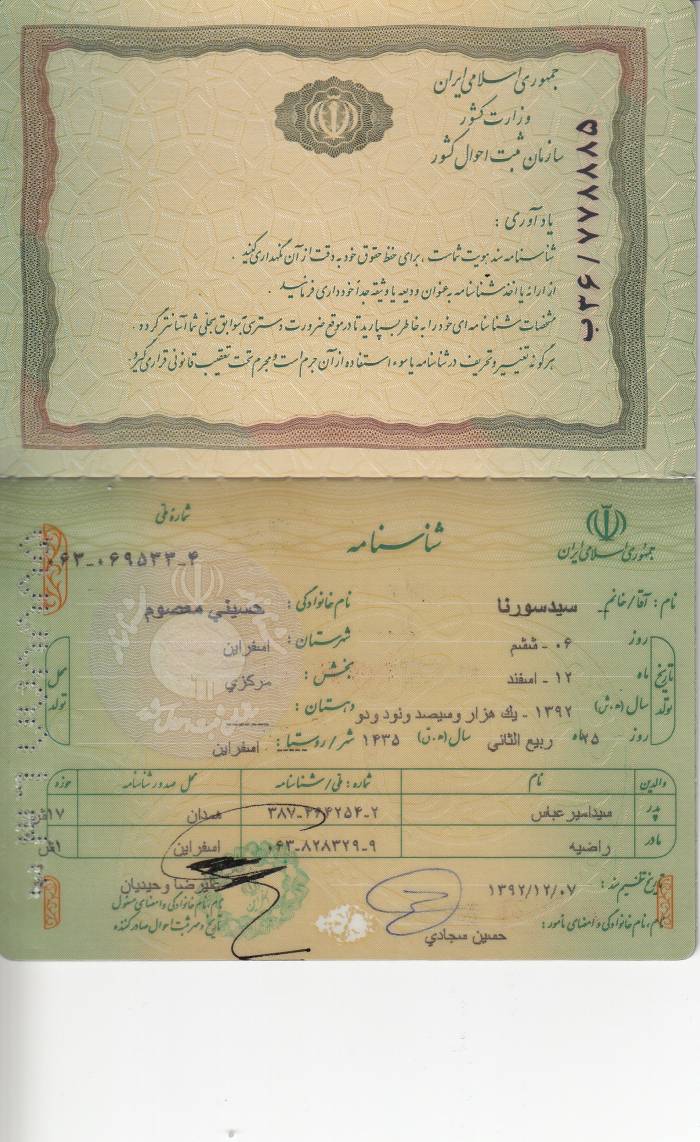 جمهوری اسلامی ایران
وزارت کشور
سازمان ثبت احوال کشور
ب۳۶/۷۷۸۸۸۵
یادآوری :
شناسنامه سند هویت شماست ، برای حفظ حقوق خود به دقت از آن نگهداری کنید .
از ارائه یا اخذ شناسنامه به عنوان ودیعه یا وثیقه جداً خودداری فرمائید .
مشخصات شناسنامه ای خود را به خاطر بسپارید تا در موقع ضرورت دسترسی بسوابق سجلی شما آسانتر گردد .
هرگونه تغییر و تحریف در شناسنامه یا سوء استفاده از آن جرم است و مجرم تحت تعقیب قانونی قرار می گیرد.
جمهوری اسلامی ایران
شناسنامه
شماره ملی
۰۶۳-۰۶۹۵۳۳-۴
نام : آقا/خانم سیدسورنا
نام خانوادگی : حسيني معصوم
تاریخ تولد
روز ۰۶ - ششم
شهرستان : اسفراین
ماه ۱۲ - اسفند
بخش : مرکزي
محل تولد
سال (ه.ش) ۱۳۹۲ - يك هزار وسيصد ونود ودو
دهستان : -----
روز ۲۵ ماه ربيع الثاني سال (ه.ق) ۱۴۳۵
شهر/روستا : اسفراین
والدین نام شماره : ملی/شناسنامه محل صدور شناسنامه حوزه
پدر سیدامیرعباس ۳۸۷-۲۴۴۲۵۴-۲ همدان ۱۷ش
مادر راضیه ۰۶۳-۸۲۸۳۲۹-۹ اسفراین ۱ش
تاریخ تنظیم سند : ۱۳۹۲/۱۲/۰۷
نام، نام خانوادگی و امضای مأمور : حسین سجادي
علیرضا وحیدیان
نام، نام خانوادگی و امضای مسئول
تاریخ و مهر ثبت احوال صادر کننده